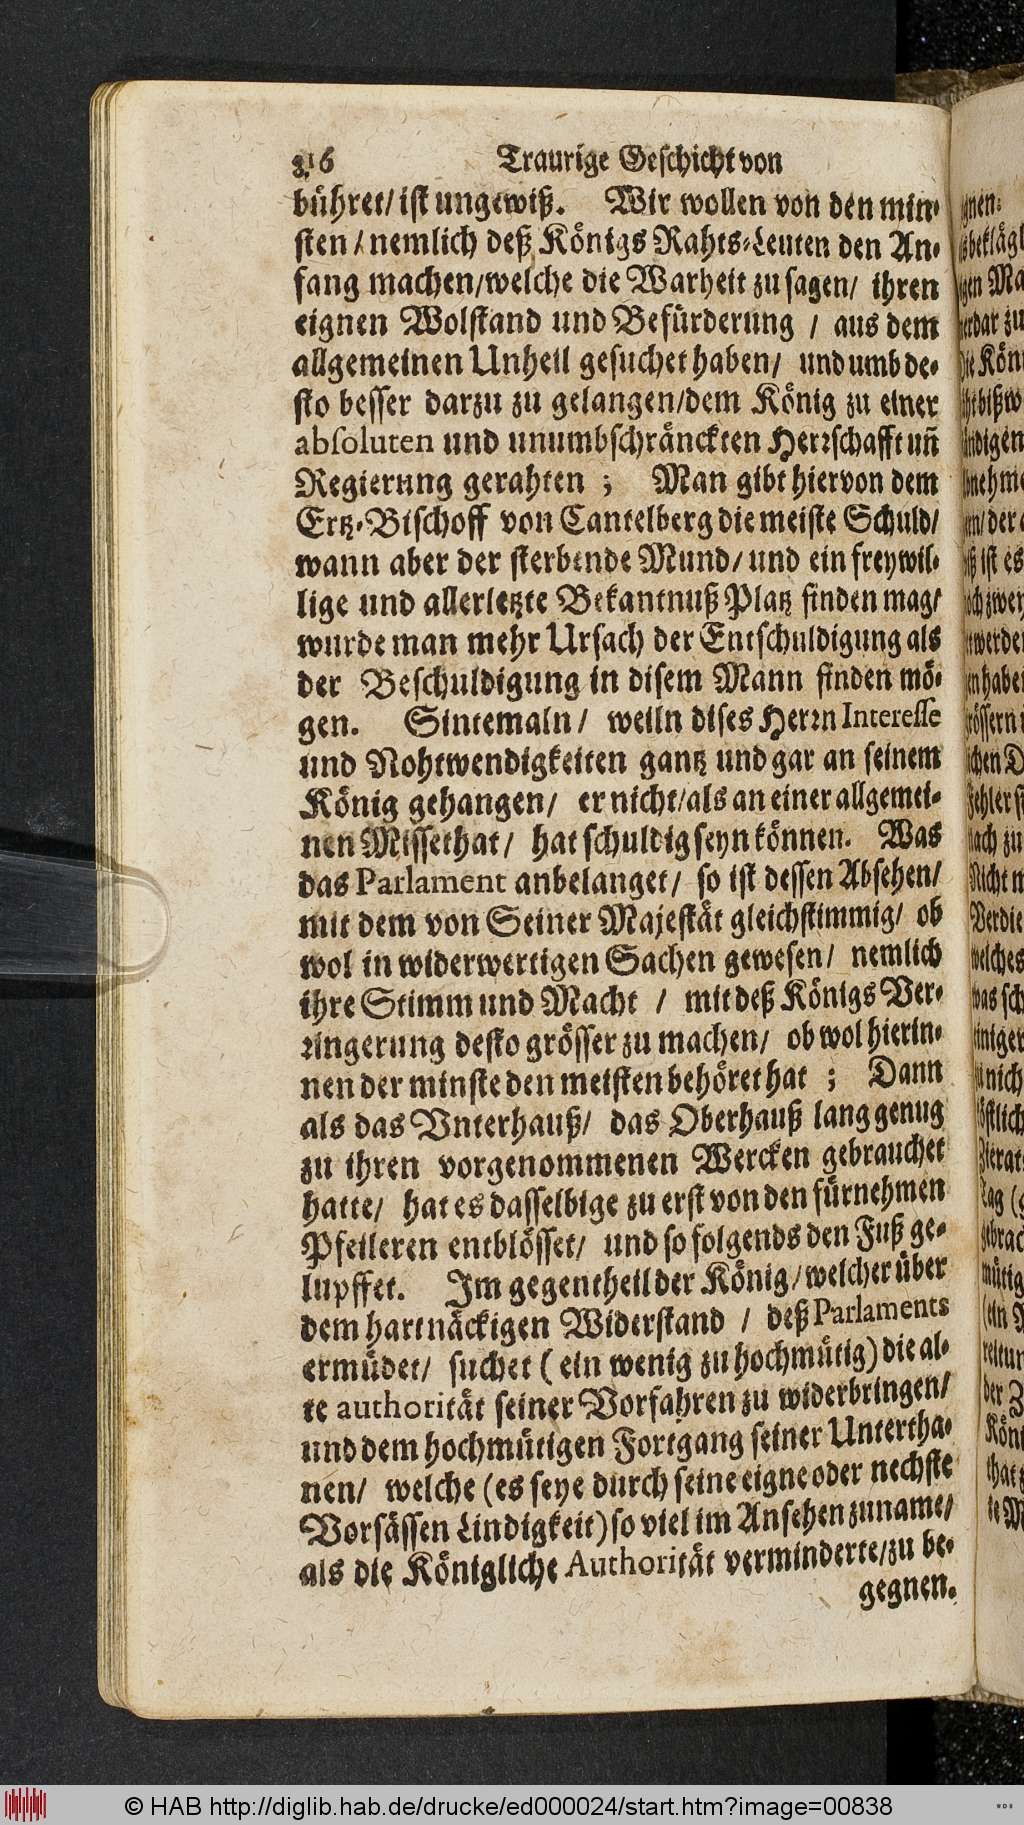 316 Traurige Geschicht von
bühret/ ist ungewiß. Wir wollen von den min⸗
sten / nemlich deß Königs Rahts⸗Leuten den An⸗
fang machen/welche die Warheit zu sagen/ ihren
eignen Wolstand und Befürderung / aus dem
allgemeinen Unheil gesuchet haben/ und umb de⸗
sto besser darzu zu gelangen/dem König zu einer
absoluten und unumbschränckten Herꝛschafft uñ
Regierung gerahten ; Man gibt hiervon dem
Ertz⸗Bischoff von Cantelberg die meiste Schuld/
wann aber der sterbende Mund/ und ein freywil⸗
lige und allerletzte Bekantnuß Platz finden mag/
wurde man mehr Ursach der Entschuldigung als
der Beschuldigung in disem Mann finden mö⸗
gen. Sintemaln/ weiln dises Herꝛn Interesse
und Nohtwendigkeiten gantz und gar an seinem
König gehangen/ er nicht/als an einer allgemei⸗
nen Missethat/ hat schuldig seyn können. Was
das Parlament anbelanget/ so ist dessen Absehen/
mit dem von Seiner Majestät gleichstimmig/ ob
wol in widerwertigen Sachen gewesen/ nemlich
ihre Stimm und Macht / mit deß Königs Ver⸗
ꝛingerung desto grösser zu machen/ ob wol hierin⸗
nen der minste den meisten behöret hat ; Dann
als das Vnterhauß/ das Oberhauß lang genug
zu ihren vorgenommenen Wercken gebrauchet
hatte/ hat es dasselbige zu erst von den fürnehmen
Pfeileren entblösset/ und so folgends den Fuß ge⸗
lupffet. Im gegentheil der König/welcher über
dem hartnäckigen Widerstand / deß Parlaments
ermüdet/ suchet (ein wenig zu hochmütig) die al⸗
te authorität seiner Vorfahren zu widerbringen/
und dem hochmütigen Fortgang seiner Untertha⸗
nen/ welche (es seye durch seine eigne oder nechste
Vorsässen Lindigkeit) so viel im Ansehen zuname/
als die Königliche Authorität verminderte/zu be⸗
gegnen.
© HAB http://diglib.hab.de/drucke/ed000024/start.htm?image=00838